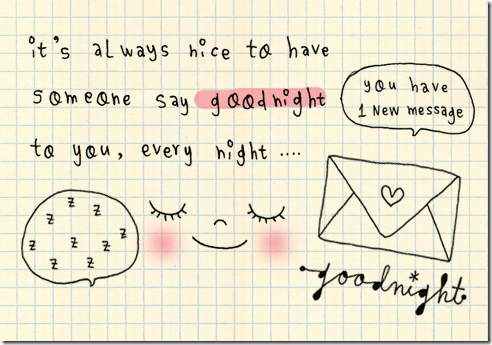 it's always nice to have
someone say goodnight
to you, every night ....
you have
1 New message
z z z
z z z z
z z
goodnight